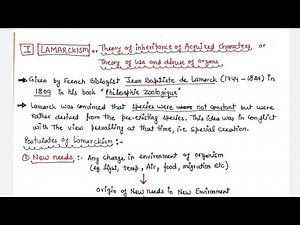 I LAMARCKISM or Theory of inheritance of Acquired characters or
Theory of use and disuse of organs.
→ Given by French biologist Jean Baptiste de Lamarck (1744-1829) in
1809 in his book "Philosophie Zoologique"
→ Lamarck was convinced that species were not constant but were
rather derived from the pre-existing species. This idea was in conflict
with the view prevailing at that time, i.e. special creation.
Postulates of Lamarckism:-
① New needs:- Any change in environment of organism
(eg light, temp, Air, food, migration etc)
↓
Origin of New Needs in New Environment